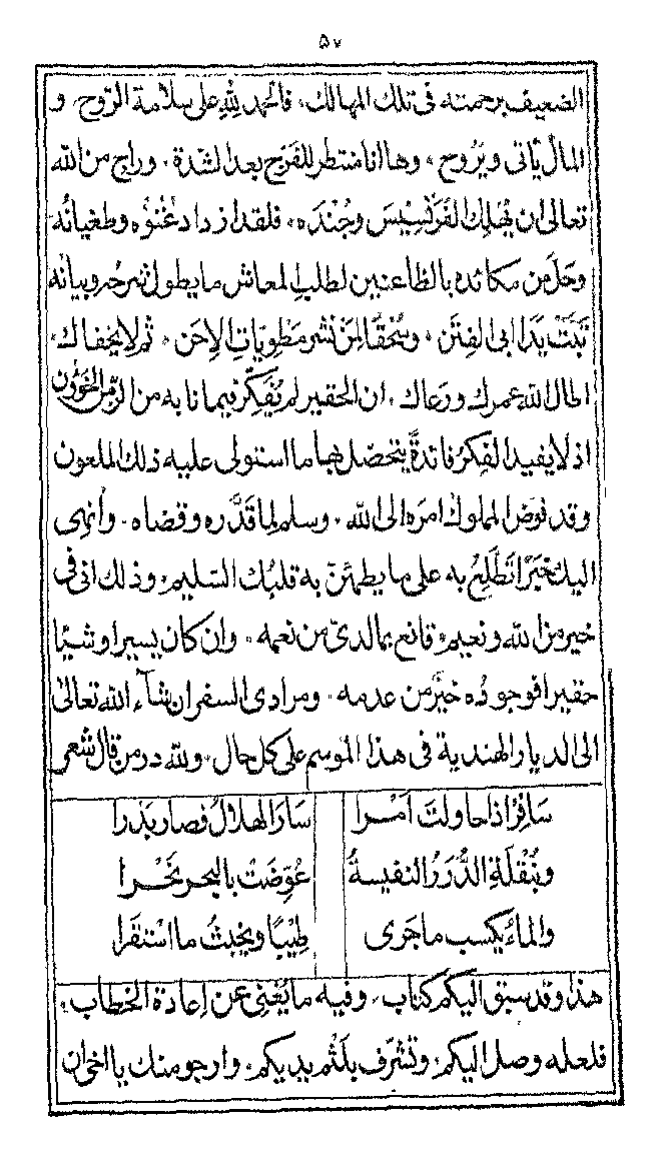 ٥٧
الضعيف برحمته فى تلك المهالك، فالحمد لله على سلامة الروح، و
المال يأتى ويَرُوح، وها انا منتظر للفَرَج بعد الشدة، وراجٍ من الله
تعالى ان يُهلِك الفَرَنْسِيْسَ وجُندَه، فلقد ازداد عُتُوّه وطغيانُه
وحَلَ من مكائده بالظاعنين لطلب المعاش ما يطول شرحه وبيانه
تَبَّتْ يَدَا ابى الفِتَن، وسُحْقًا لِمَنْ نشر مَطْوِيَّاتِ الاِحَن، ثم لا يخفاك،
اطال الله عمرك ورعاك، ان الحقير لم يُفَكِّر فيما نابه من الزمن الخَؤُون
اذ لا يفيد الفِكرُ فائدةً يتحصّل بها ما استولى عليه ذلك الملعون
وقد فوّض المملوك امرَه الى الله، وسلم لِما قَدَّره وقضاه، واُنْهِى
اليك خَبَرًا تَطَّلِعُ به على ما يطمئنّ به قلبُك السّليم، وذلك انى فى
خير من الله ونعيم، قانع بما لدىّ من نعمه، وان كان يسيرا وشيئا
حقيرا فوجودُه خيرٌ من عدمه، ومرادى السفر ان شآء الله تعالى
الى الديار الهندية فى هذا الموسم على كل حال، ولله در من قال شعر
سَافِرْ اذا حاولتَ اَمْرا سَارَ الهلالُ فصار بَدْرا
وبِنُقْلَةِ الدُّرَرُ النفيسةُ عُوِّضَتْ بالبحر نَحْرا
والماءُ يكسب ما جَرَى طِيْبًا ويخبثُ ما اسْتَقَرا
هذا وقد سبق اليكم كتاب، وفيه ما يُغْنِى عن اِعادة الخطاب،
فلعله وصل اليكم، وتشرّف بِلَثْم يديكم، وارجو منك يا اخى ان